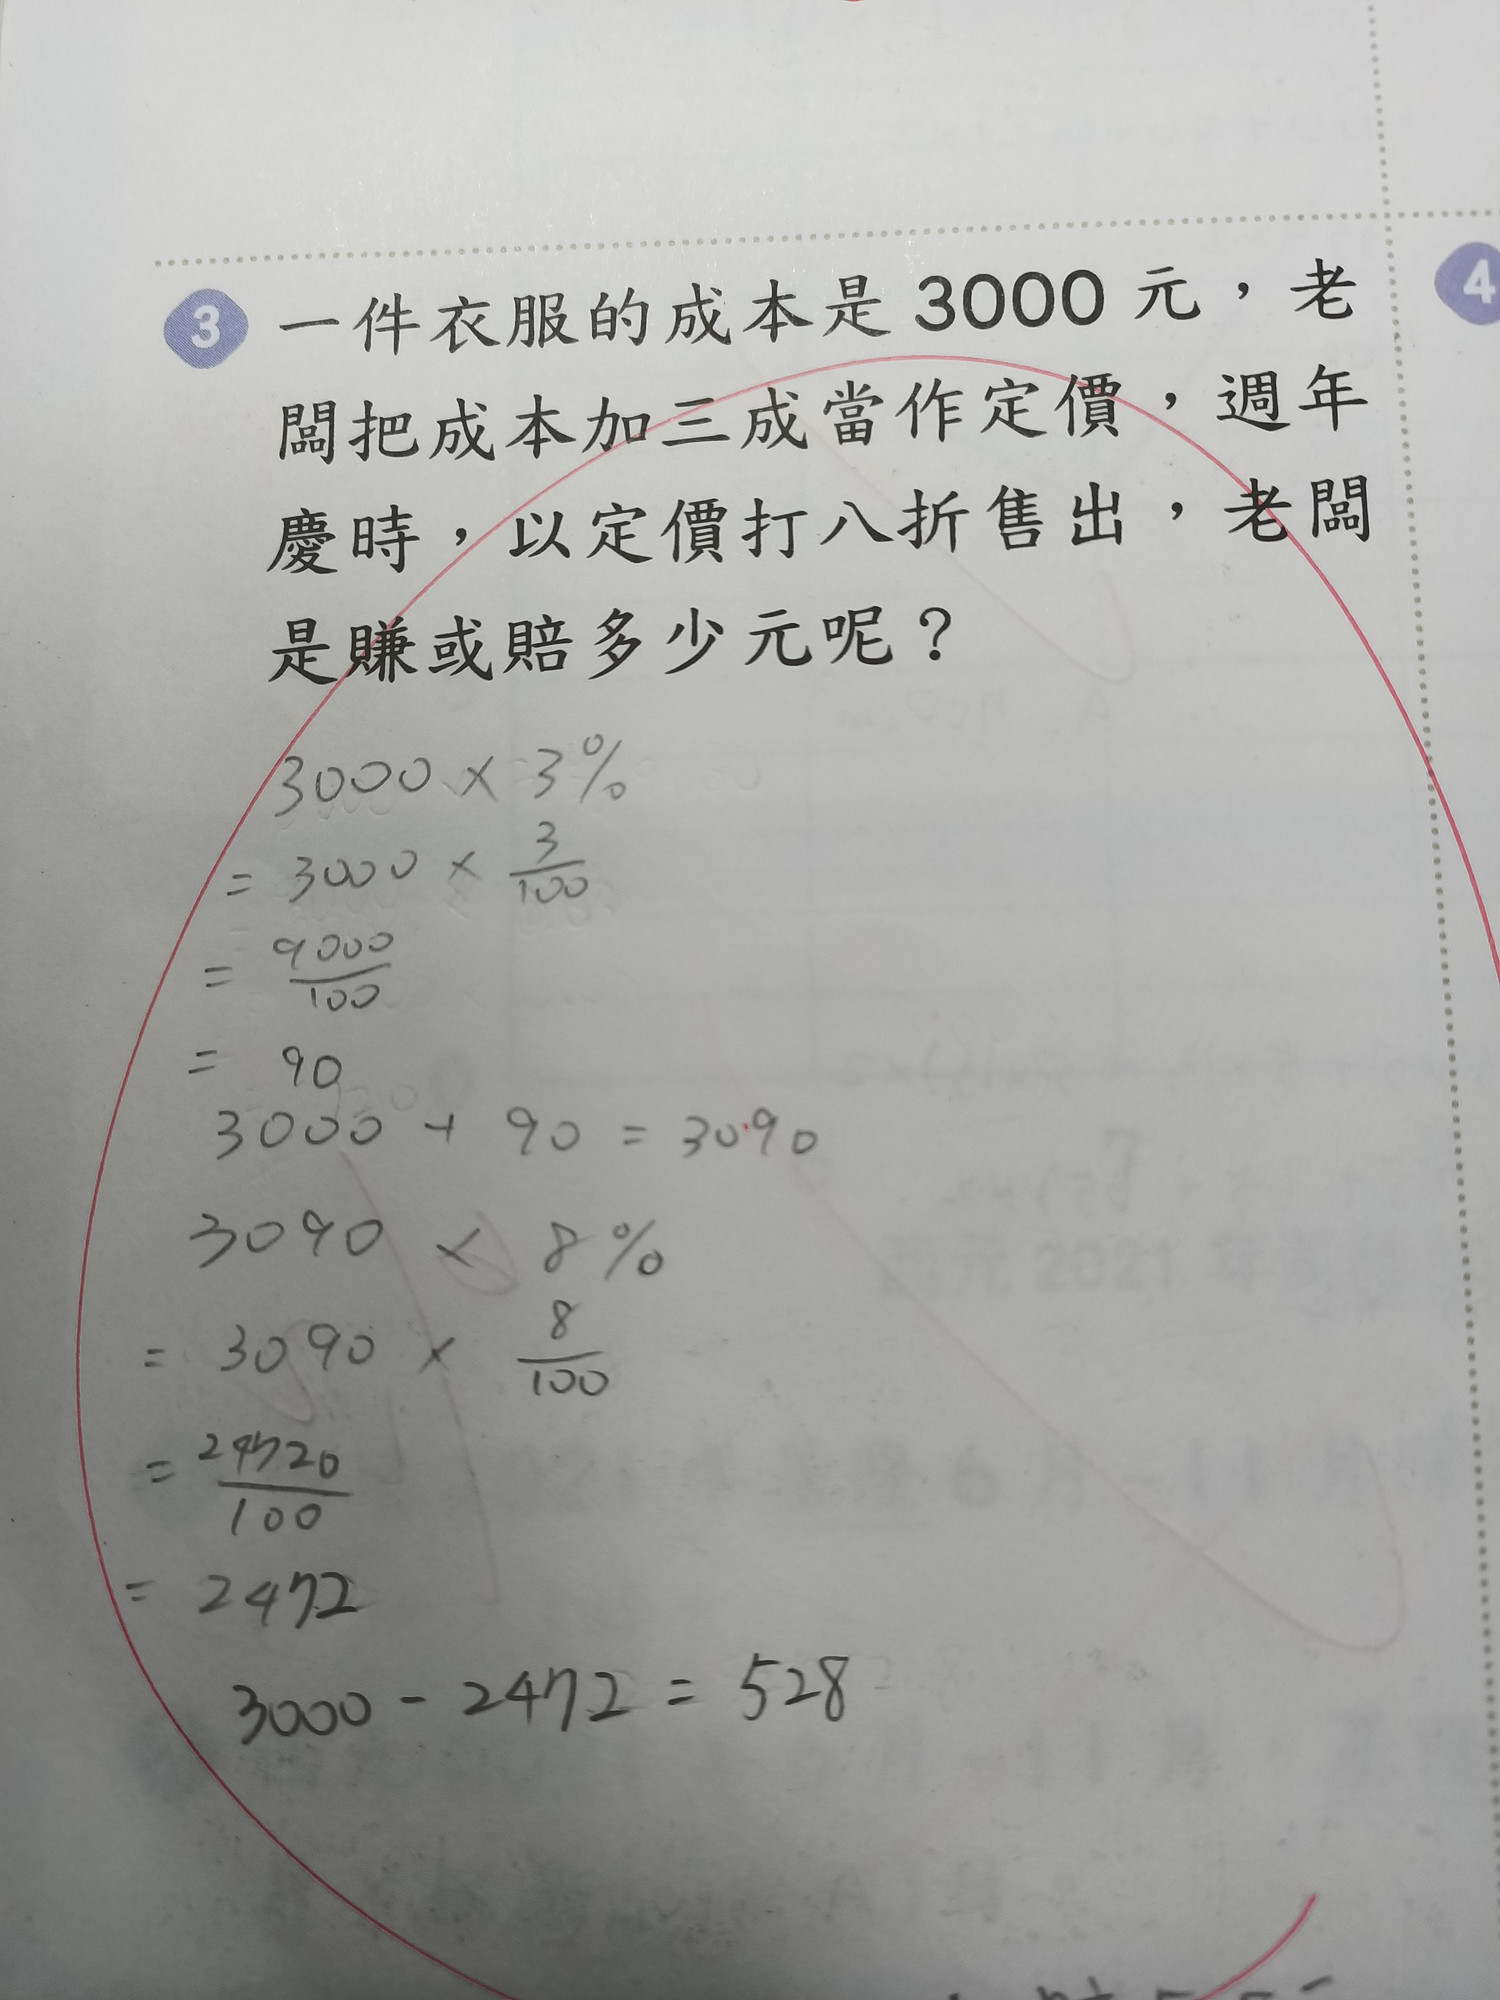 3 一件衣服的成本是 3000 元，老
闆把成本加三成當作定價，週年
慶時，以定價打八折售出，老闆
是賺或賠多少元呢？
4
3000 × 3%
= 3000 × 3/100
= 9000/100
= 90
3000 + 90 = 3090
3090 × 8%
= 3090 × 8/100
= 24720/100
= 2472
3000 - 2472 = 528